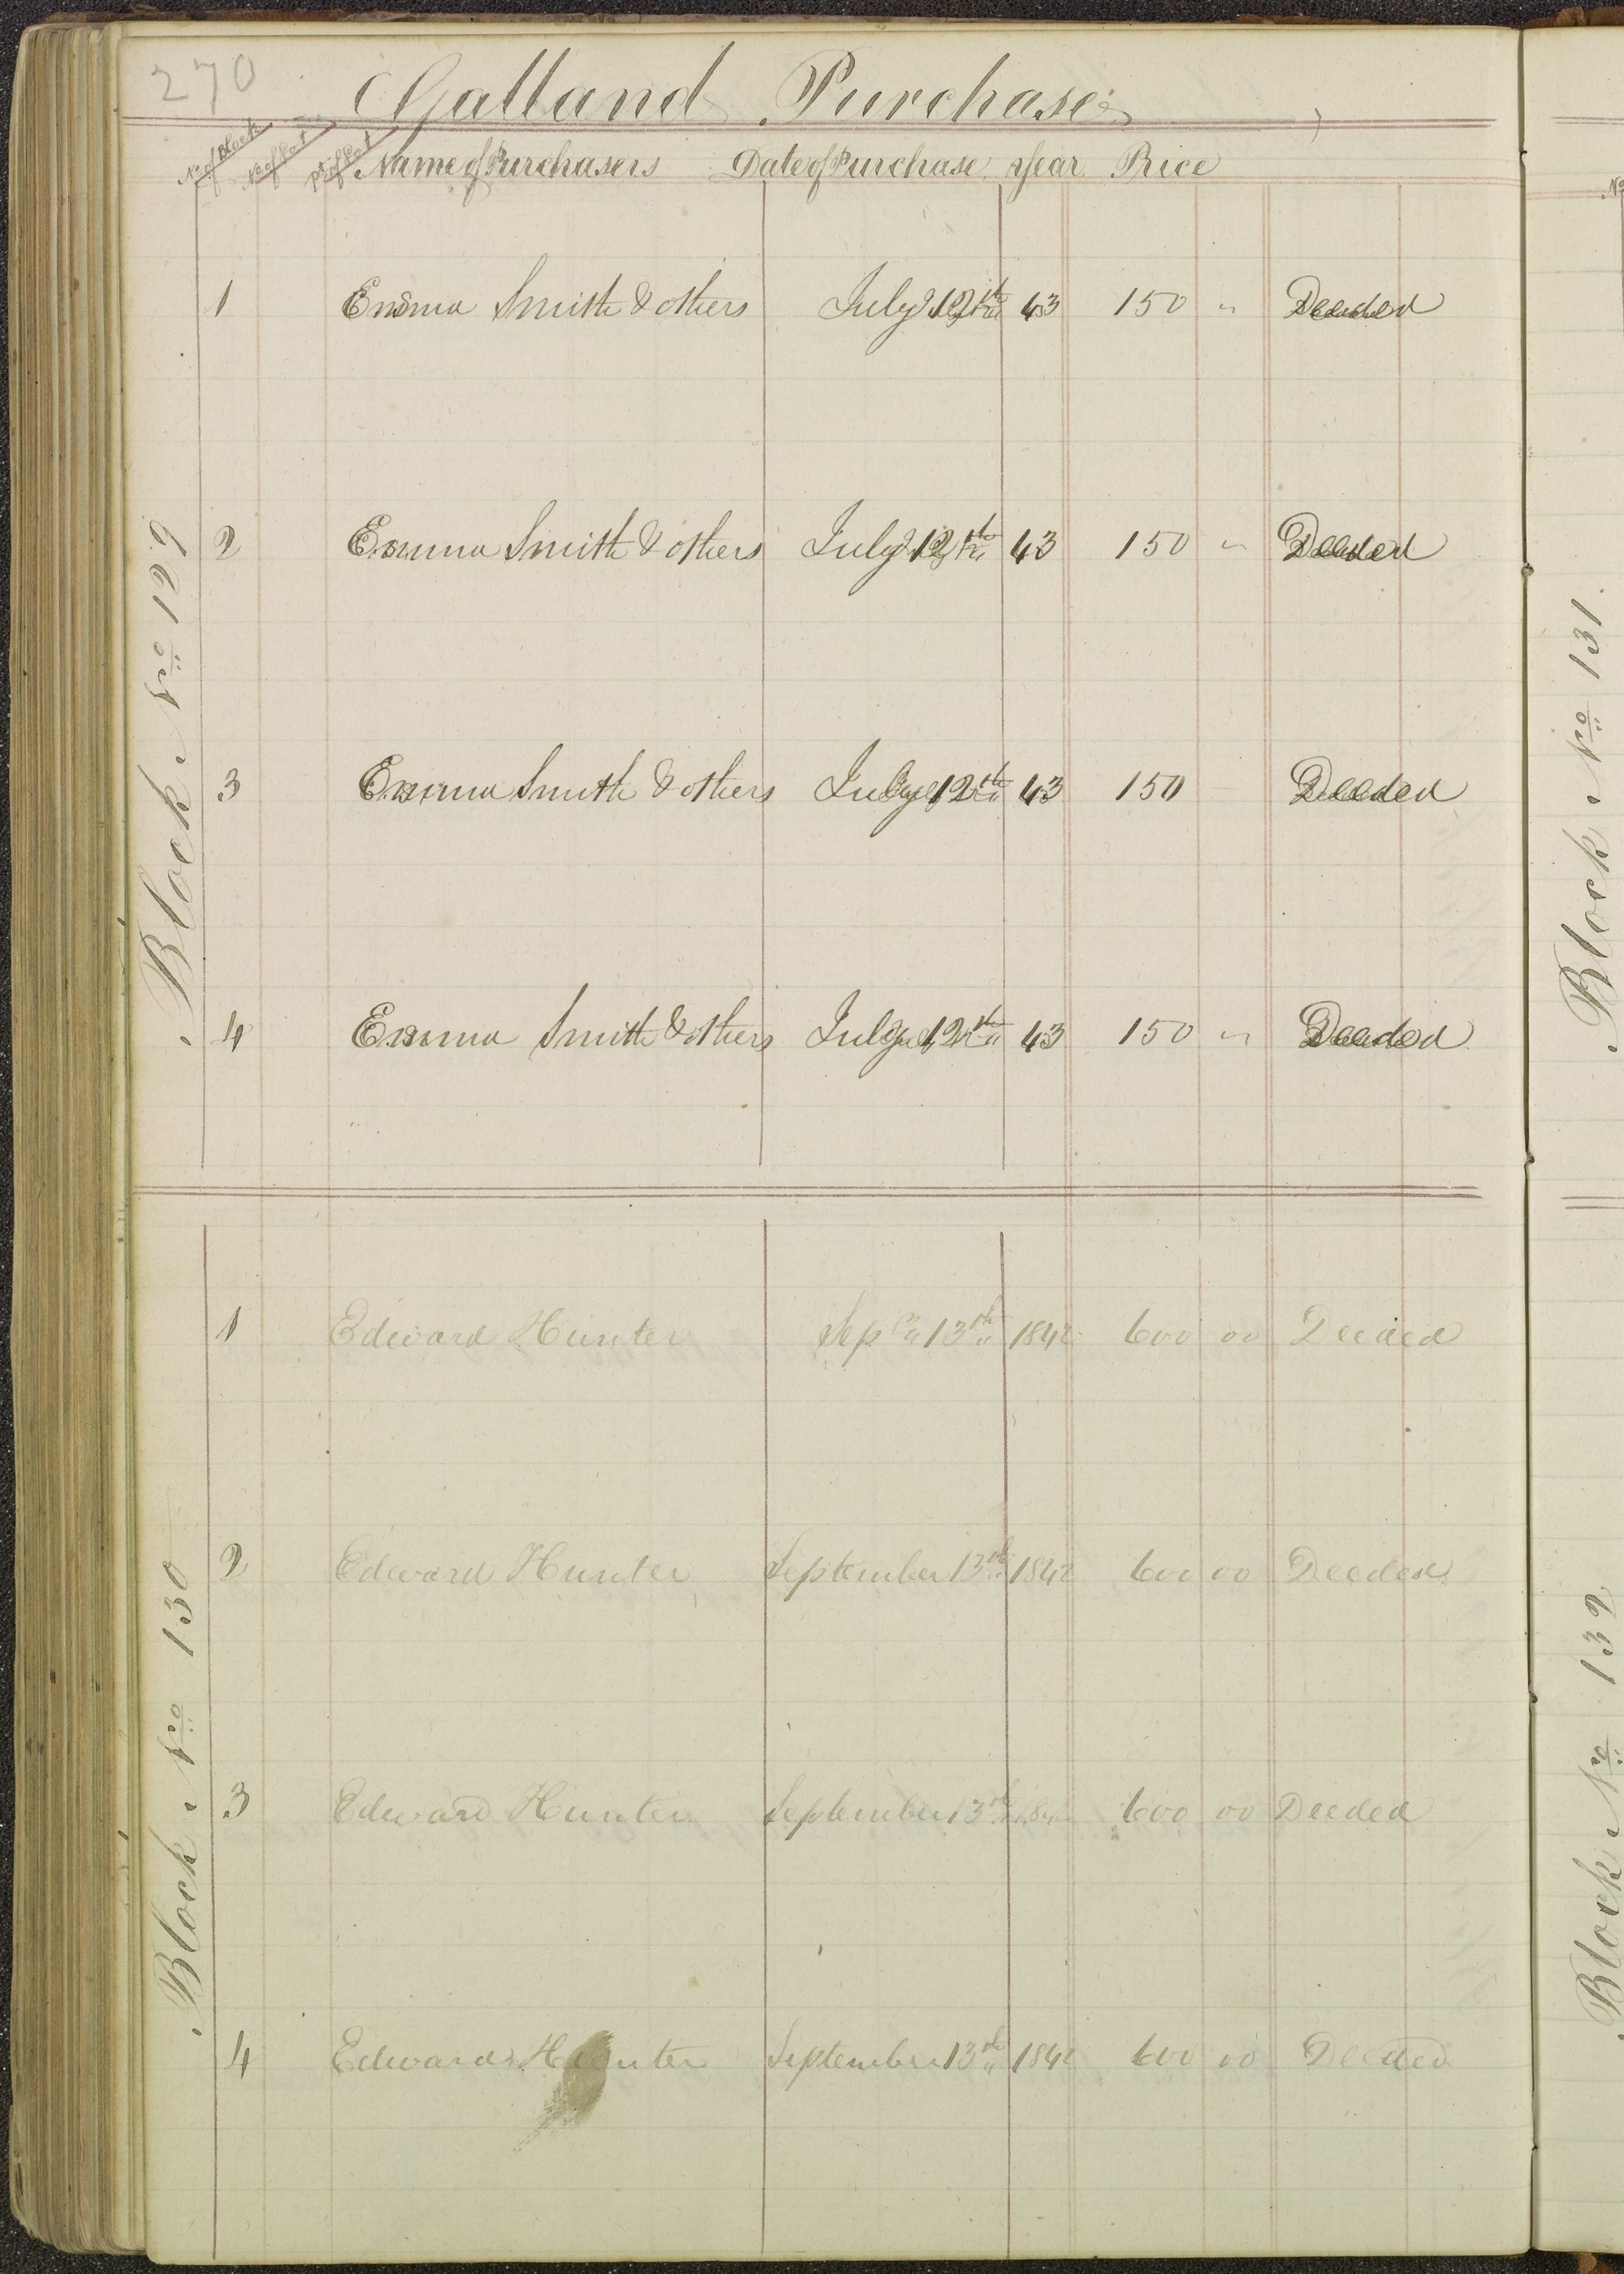 270
Galland Purchase
No of Block No of Lot Pt of Lot Name of Purchasers Date of Purchase Year Price
Block No 129
1 Emma Smith & others July 12th 43 150 " Deeded
2 Emma Smith & others July 12th 43 150 " Deeded
3 Emma Smith & others July 12th 43 150 Deeded
4 Emma Smith & others July 12th 43 150 " Deeded
Block No 130
1 Edward Hunter Sep 13th 1842 600 00 Deeded
2 Edward Hunter September 13th 1842 600 00 Deeded
3 Edward Hunter September 13th 184 600 00 Deeded
4 Edward Hunter September 13th 1842 600 00 Deeded
No
Block No 131.
Block No 132